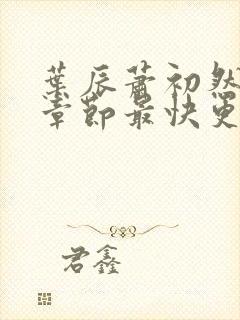 葉辰蕭初然
章節最快更
君鑫